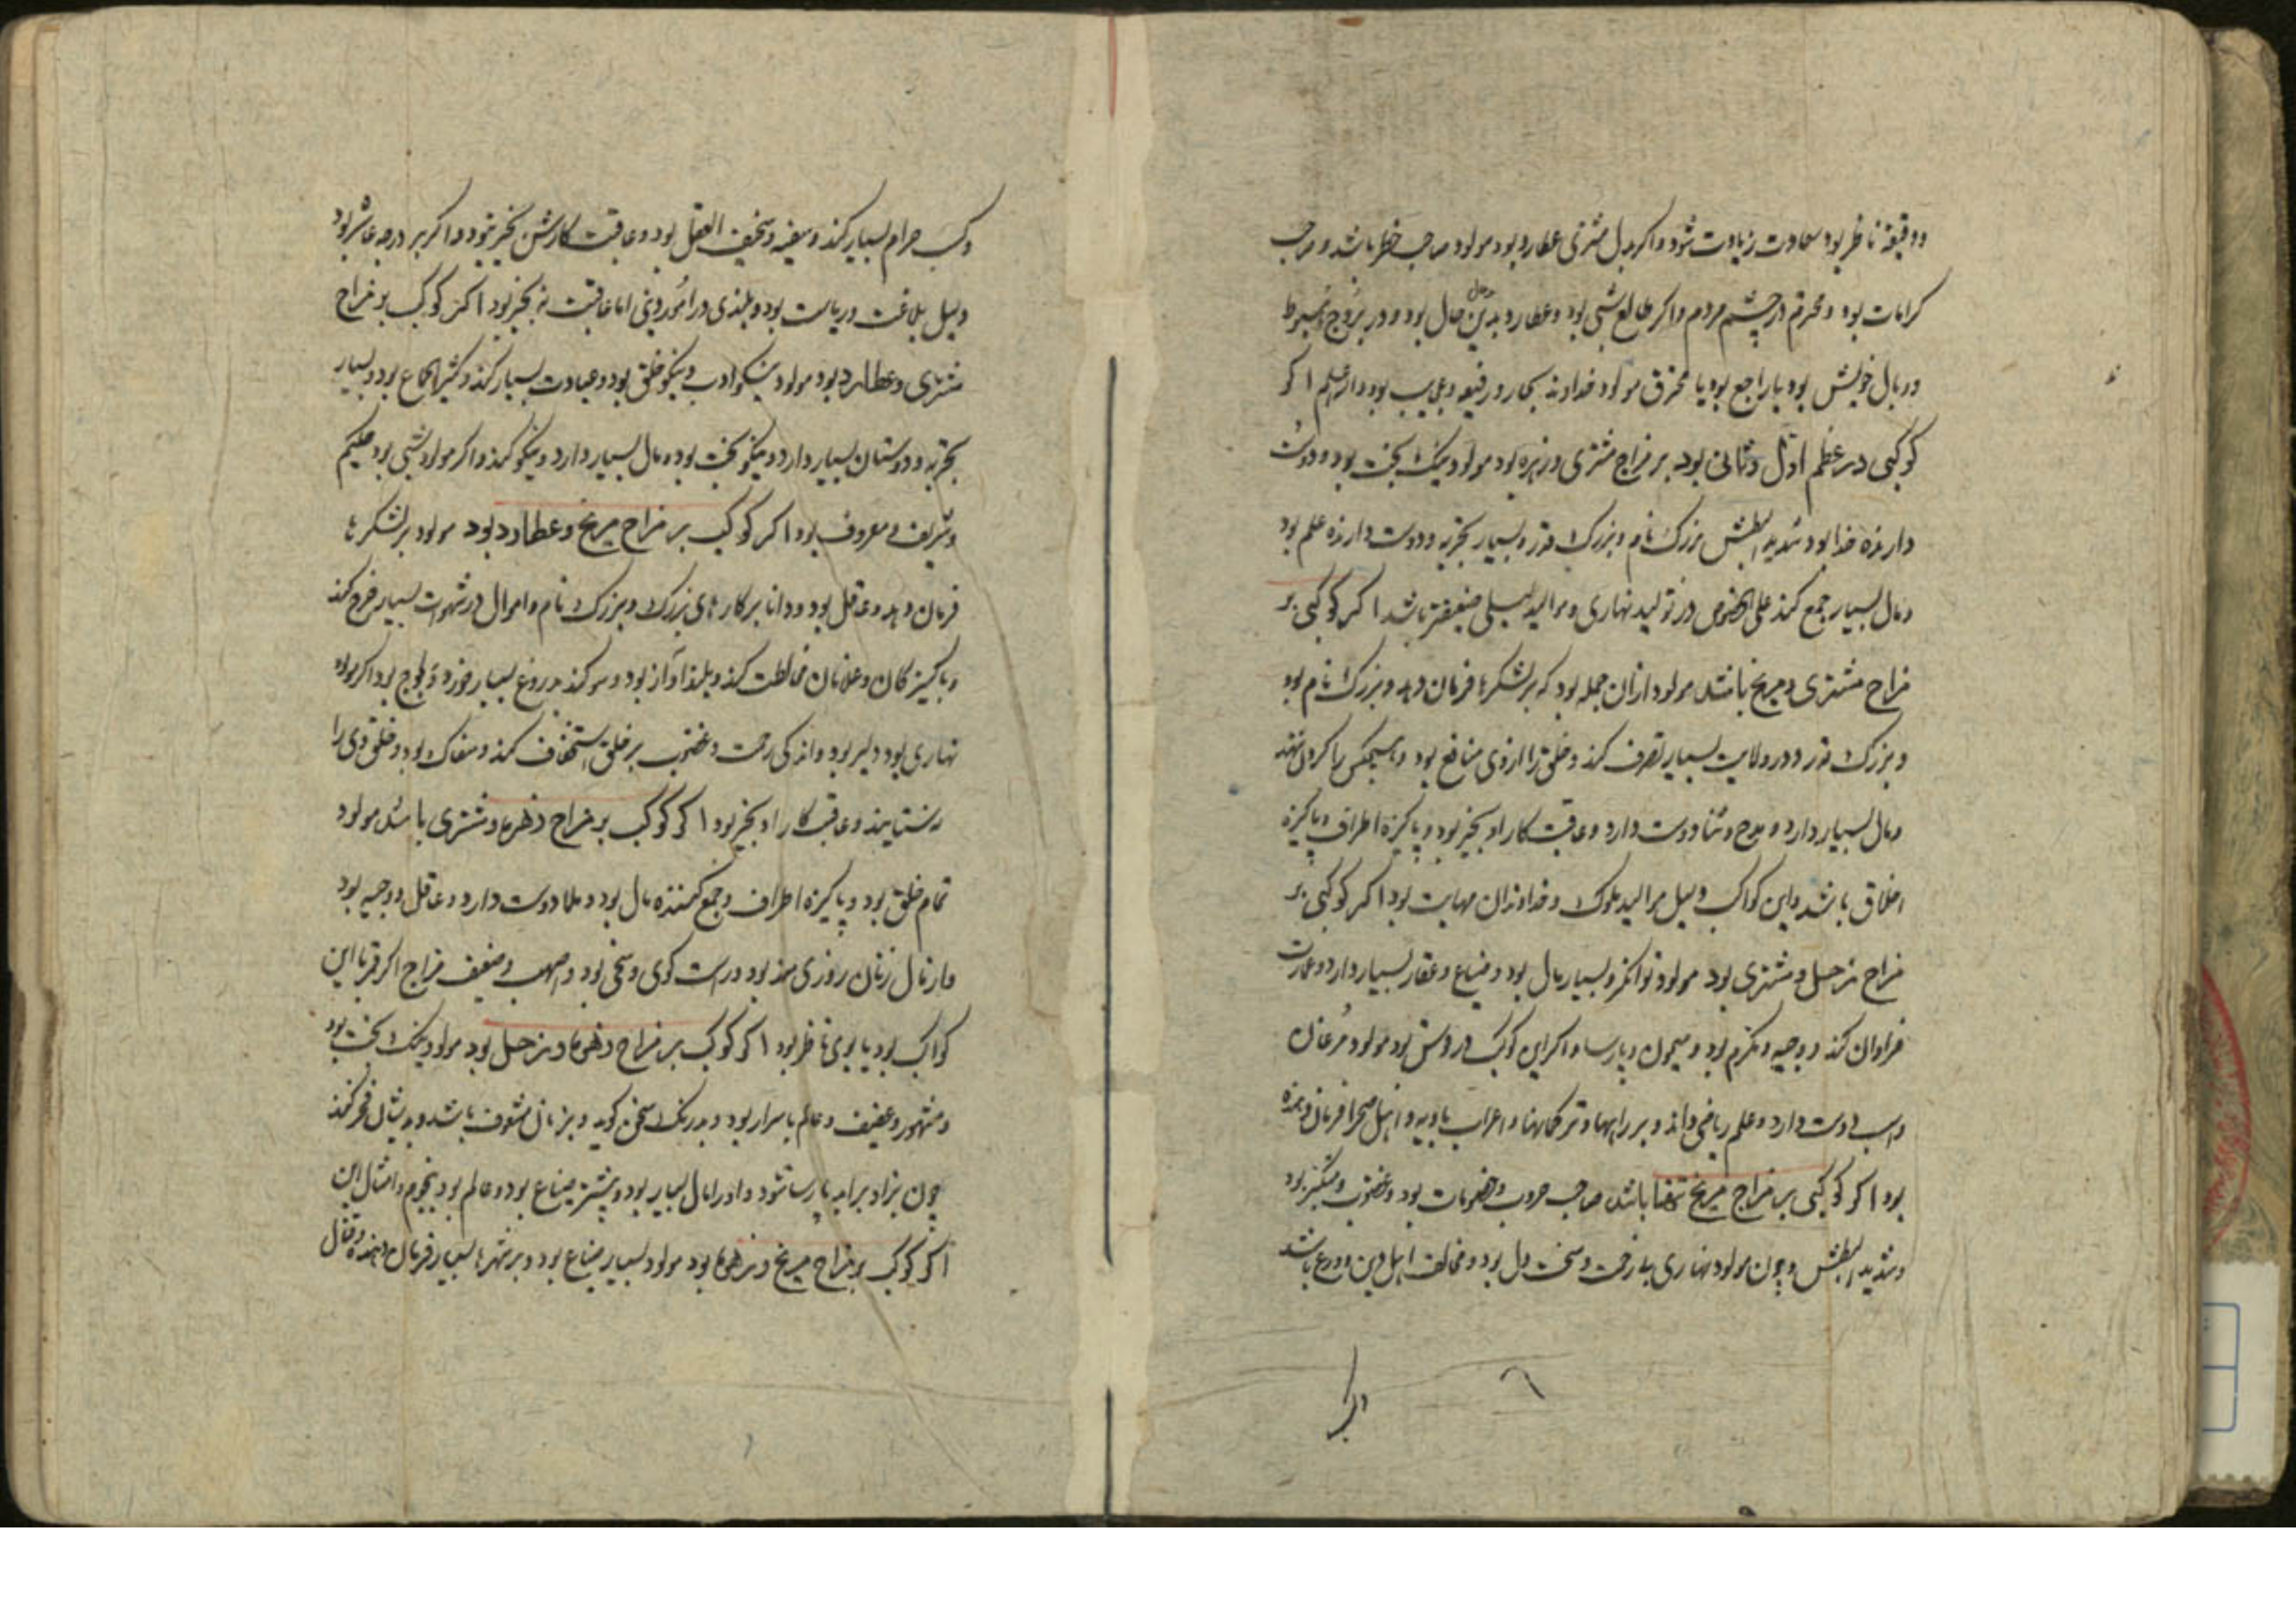 ودقیقه ناظر بود سعادت زیادت شود و اگر بدل مشتری عطارد بود مولود صاحب خطر باشد و صاحب
کرامات بود و محترم در چشم مردم و اگر طالع شبی بود و عطارد بدین حال بود و در بروج هبوط
و وبال خویش بود یا راجع بود یا محترق مولود خداوند بود والله اعلم اگر
کوکبی در عظم اول و ثانی بود بر مزاج مشتری و زهره بود مولود نیک بخت بود و دوست
دارنده خدا بود و شدید البطش بزرگ نام و بزرگ قدر و بسیار تجربه و دوست دارنده علم بود
و مال بسیار جمع کند علی الخصوص در تولید نهاری و موالید لیلی ضعیفتر باشد اگر کوکبی بر
مزاج مشتری و مریخ باشد مولود از آن جمله بود که بر لشکرها فرمان دهد و بزرگ نام بود
و بزرگ قدر و در ولایت بسیار تصرف کند و خلق را از وی منافع بود و هیچکس را گردن ننهد
و مال بسیار دارد و مدح و ثنا دوست دارد و عاقبت کار او بخیر بود و پاکیزه اطراف و پاکیزه
اخلاق باشد و این کواکب دلیل موالید ملوک و خداوندان مهابت بود اگر کوکبی بر
مزاج زحل و مشتری بود مولود توانگر و بسیار مال بود و ضیاع و عقار بسیار دارد و عمارت
فراوان کند و وجیه و مکرم بود و میمون و پارسا و اگر این کوکب در وتش بود مولود مرغان
و اسب دوست دارد و علم ریاضی داند و بر راهها و ترکمانها و اعراب بادیه و اهل صحرا فرمان دهنده
بود اگر کوکبی بر مزاج مریخ تنها باشد صاحب حروب و خصومات بود و غضوب و متکبر بود
و شدید البطش و چون مولود نهاری بی رحمت و سخت دل بود و مخالف اهل دین و ورع باشد
وکسب حرام بسیار کند و سفیه و سخیف العقل بود و عاقبت کارش بخیر نبود و اگر بر درجه عاشر بود
دلیل بلاغت و ریاست بود و بلندی در امور دینی اما عاقبت نه بخیر بود اگر کوکب بر مزاج
مشتری و عطارد بود مولود نیکو ادب و نیکو خلق بود و عبادت بسیار کند و کثیر الجماع بود و بسیار
تجربه و دوستان بسیار دارد و نیکو بخت بود و مال بسیار دارد و نیکو کند و اگر مولود شبی بود حکیم
و شریف و معروف بود اگر کوکب بر مزاج مریخ و عطارد بود مولود بر لشکرها
فرمان دهد و عاقل بود و دانا بر کارهای بزرگ و بزرگ نام و اموال در شهوات بسیار خرج کند
و با کنیزکان و غلامان مخالطت کند و بلند آواز بود و سوگند بدروغ بسیار خورد و لجوج بود اگر مولود
نهاری بود دلیر بود و اندکی رحمت و غضوب بر خلق استخفاف کند و سفاک بود و خلق وی را
بستایند و عاقبت کار او بخیر بود اگر کوکب بر مزاج زهره و مشتری باشد مولود
تمام خلق بود و پاکیزه اطراف و جمع کننده مال بود و علما دوست دارد و عاقل و وجیه بود
و از مال زنان روزی مند بود و راست گوی و سخی بود و ضعیف مزاج اگر قمر با این
کواکب بود یا بوی ناظر بود اگر کوکب بر مزاج زهره و زحل بود مولود نیک بخت بود
و مشهور و عفیف و عالم باسرار بود و بدرنگ سخن گوید و بزنان مشعوف باشد و بدیشان فجر کند
چون بزاد برآید پارسا شود و او را مال بسیار بود و بیشتر ضیاع بود و عالم بود بنجوم و امثال این
اگر کوکب بر مزاج مریخ و زهره بود مولود بسیار ضیاع بود و بر شهرها بسیار فرمان دهنده و قتال